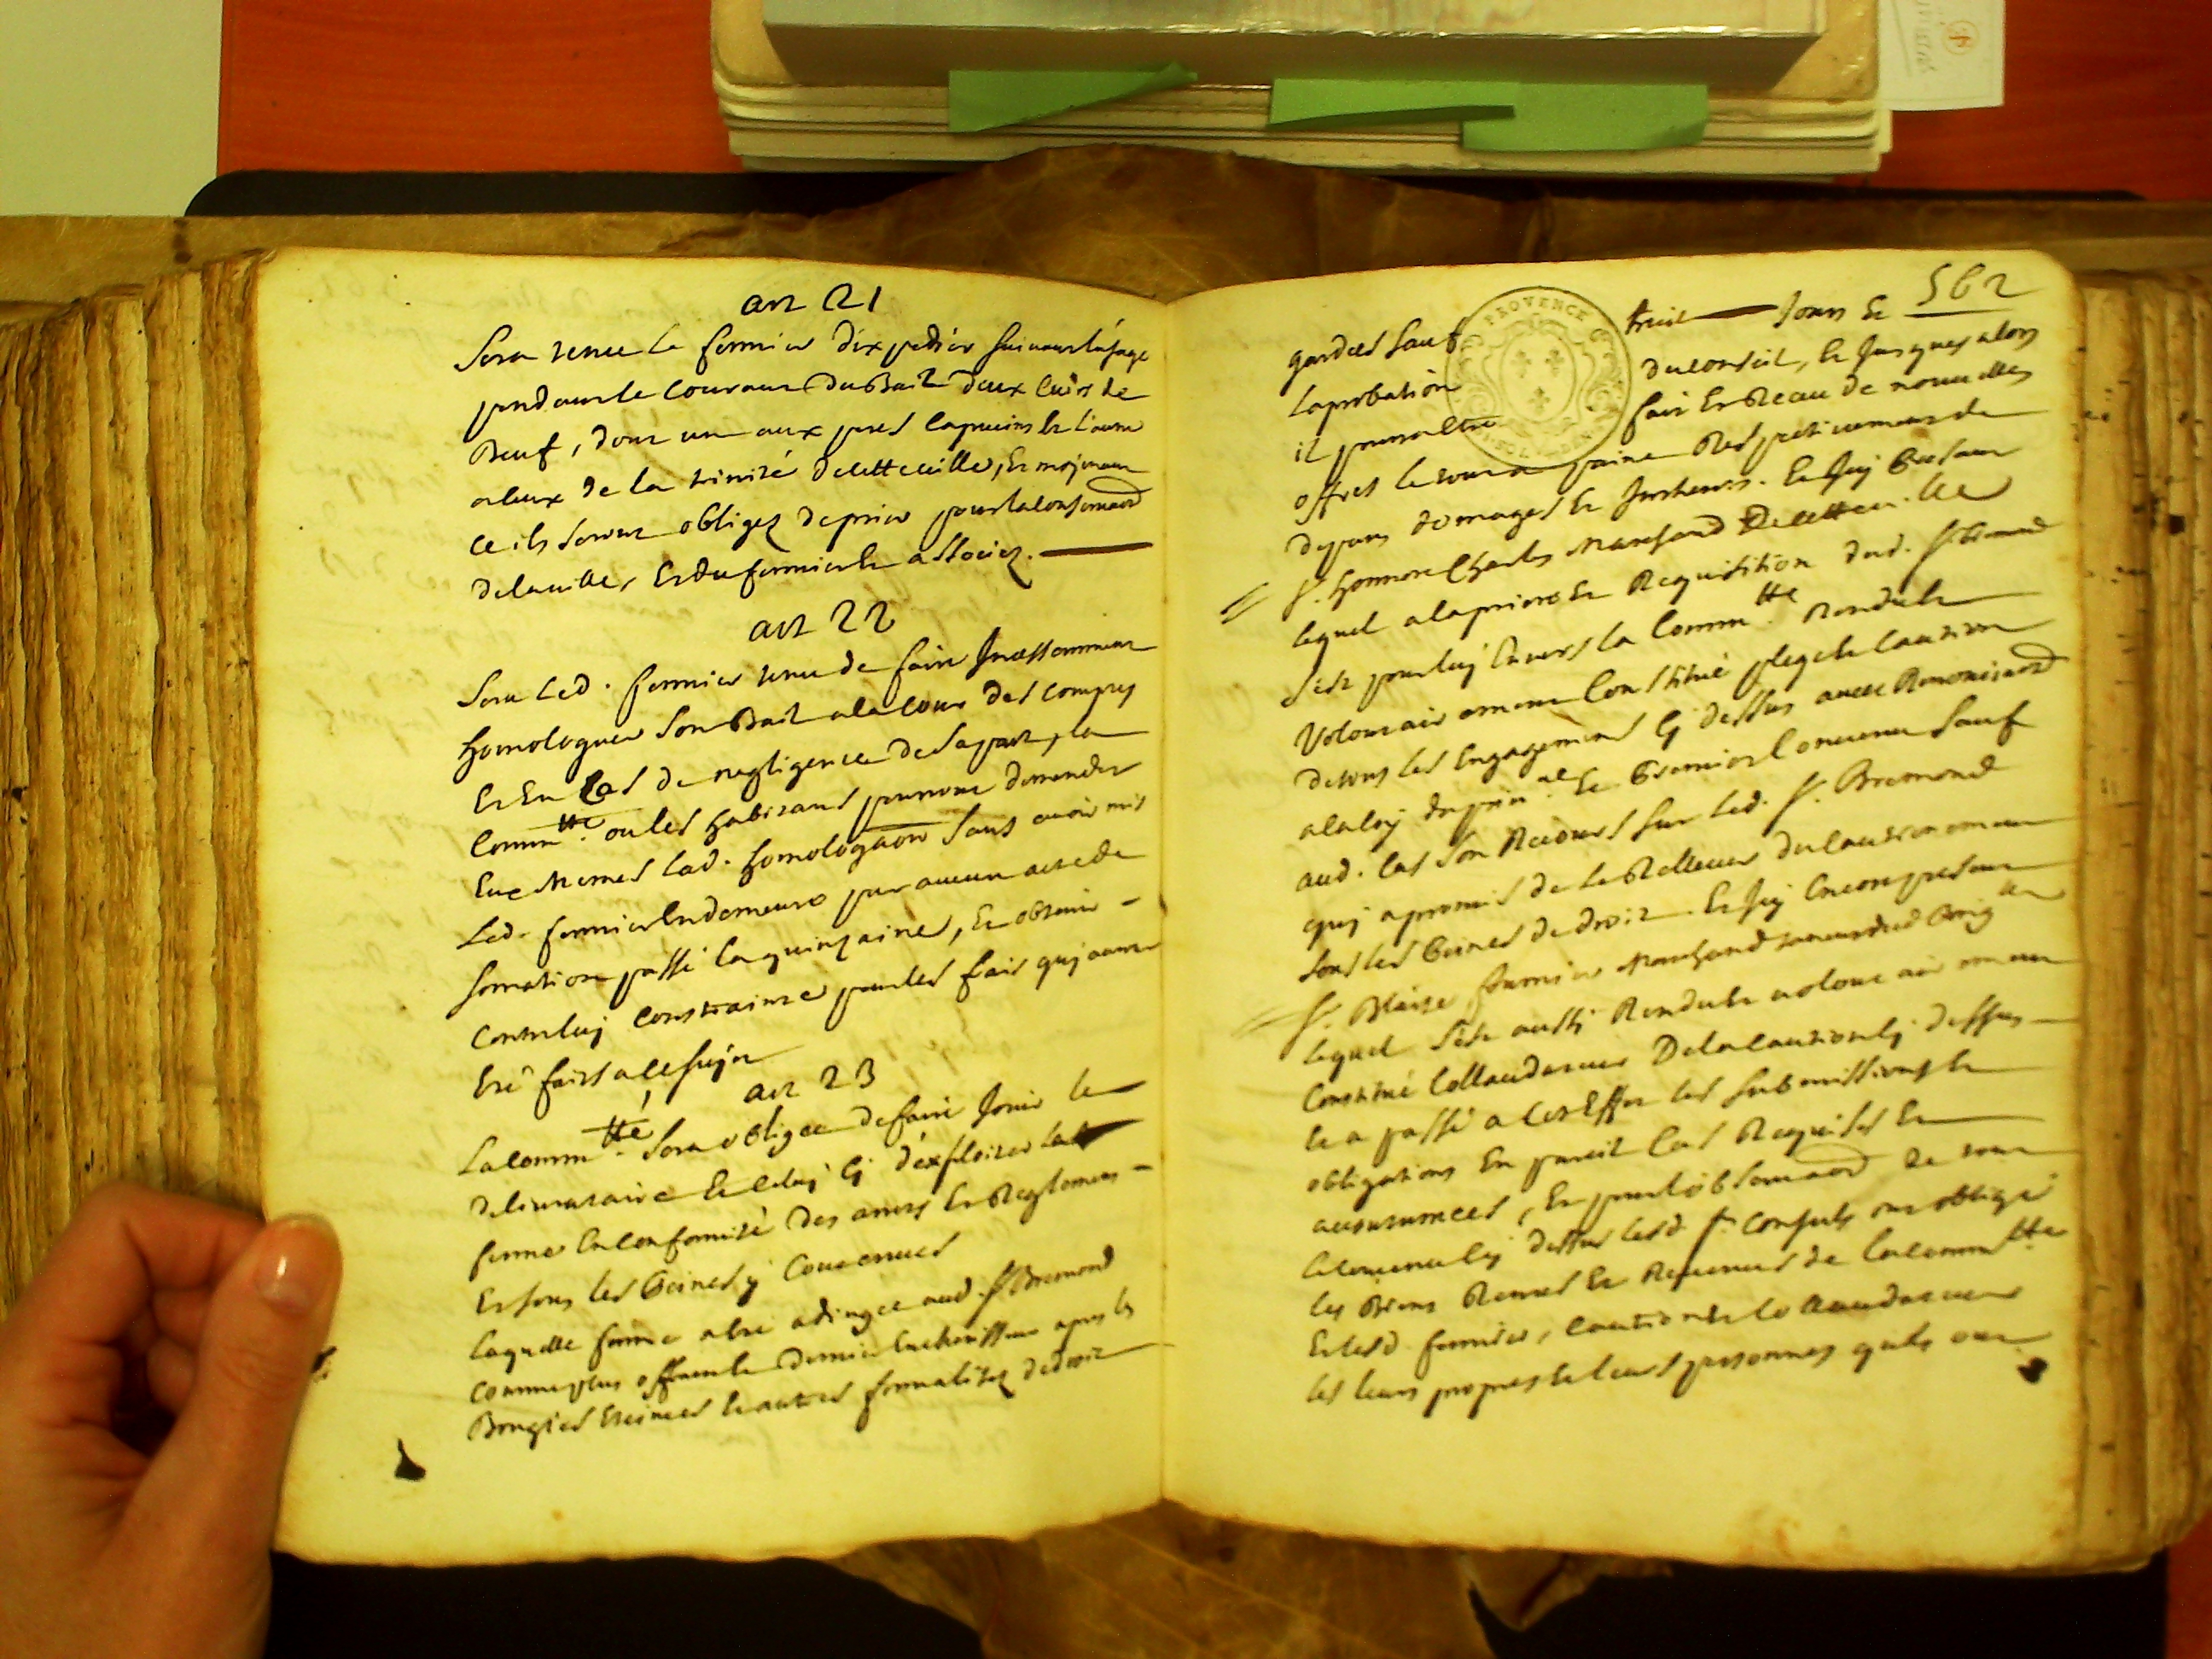 art 21
Sera tenu le fermier d'expedier suivant lusage
pendant le courant du Bail deux cuirs de
Beuf, dont un aux peres Capucins & l'autre
a ceux de la trinité de cette ville, & mojenant
ce ils seront obliges de prier pour la conservaõn
de la ville, & du fermier & associez.
art 22
Sera led. fermier tenu de faire Incessamment
homologuer son Bail a la cour des comptes
Et En Cas de negligence de sa part, la
Comm.tté ou les habitans pourront demander
Eux memes lad. homologaõn sans avoir mis
Led. fermier En demeure par aucun acte de
somation passé la quinzaine, & obtenir
contre luy contrainte pour les frais quj auront
Eté faits a ce sujet
art 23
La comm.tté sera obligée de faire Jouir le
deliurataire & celuy cj d'exploiter la
ferme En conformité des arrets & Reglemens
Et sous les Peines y Contenues
Laquelle ferme a été adjugee aud. Sr. Bremond
comme plus offrant & dernier Encherisseur apres les
Bougies Eteintes & autres formalitez de droit
562
gardées sauf huit Jours &
Laprobation du conseil, & Jusques alors
il pourra etre fait & Receu de nouvelles
offres le tout a paine Respectivement de
depans domages & Interets. Et Icy present
Sr. honnoré Charles Marchand de cette ville
lequel a la priere & Requisition dud. Sr. Bremond
s'est pour luy Envers la Comm.tté Rendu &
Volontairement Constitué plege & caution
de tous les Engagements cj dessus avec Renonciaõn
a la loy du prin.al Et Premier Convenu sauf
aud. cas son Recours sur led. Sr. Bremond
quj a promis de le Relever du cautionement
sous les Peines de droit. Et Icy Encore present
Sr. Blaise fournier Marchand
lequel s'est aussj Rendu & volontairement
Constitué Collaudateur De la caution cj dessus
& a passé a cet Effet les submissions &
obligations En pareil Cas Requises &
accoutumées, Et pour lobservaõn de tout
le contenu cj dessus lesd. Srs. Consuls ont obligé
les Biens Rentes & Revenus de la comm.tté
Et lesd. fermier, caution & collaudateur
les leurs propres & leurs personnes quils ont